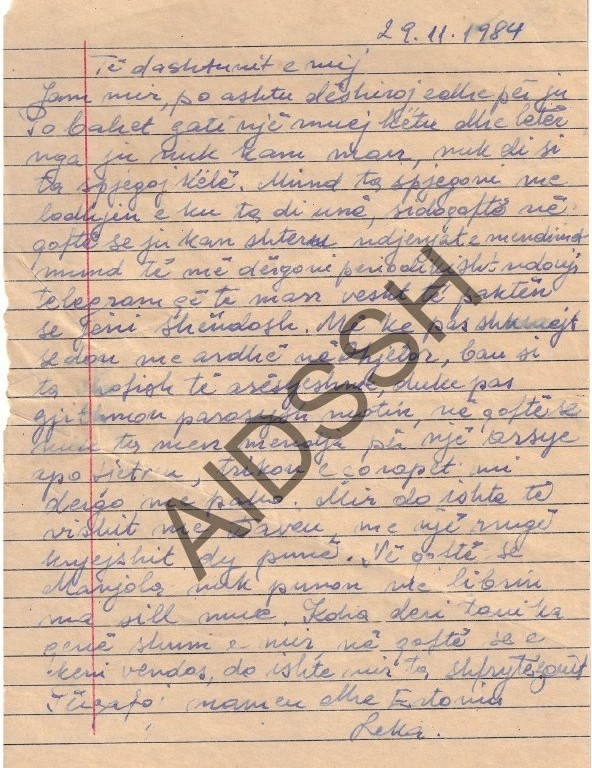 29.11.1984
Të dashtunit e mij
Jam mir, po ashtu dëshiroj edhe për ju
Po bahet gati një muej këtu dhe letër
nga ju nuk kam marr, nuk di si
ta spjegoj këtë. Mund ta spjegoni me
lodhjen e ku ta di unë, sidoqoftë në
qoftë se ju kan shteru ndjenjat e mendimet
mund të më dërgoni periodikisht ndonji
telegram që te marr vesht të paktën
se jeni shëndosh. Më ke pas shkruejt
se don me ardhë në dhjetor, ban si
ta shofish të arësyeshme duke pas
gjithmon parasysh motin, në qoftë se
nuk ta merr mendja për një arsye
apo tjetrën, trikon e çorapet mi
dergo me pako. Mir do ishte të
vishit me me një rrugë
kryejshit dy punë. Në qoftë se
Manjola nuk punon me librin
ma sill mue. Koha deri tani ka
qenë shum e mir, në qoftë se e
keni vendos, do ishte mir ta shfrytëzonit
mamen dhe
Leka.
AIDSSH